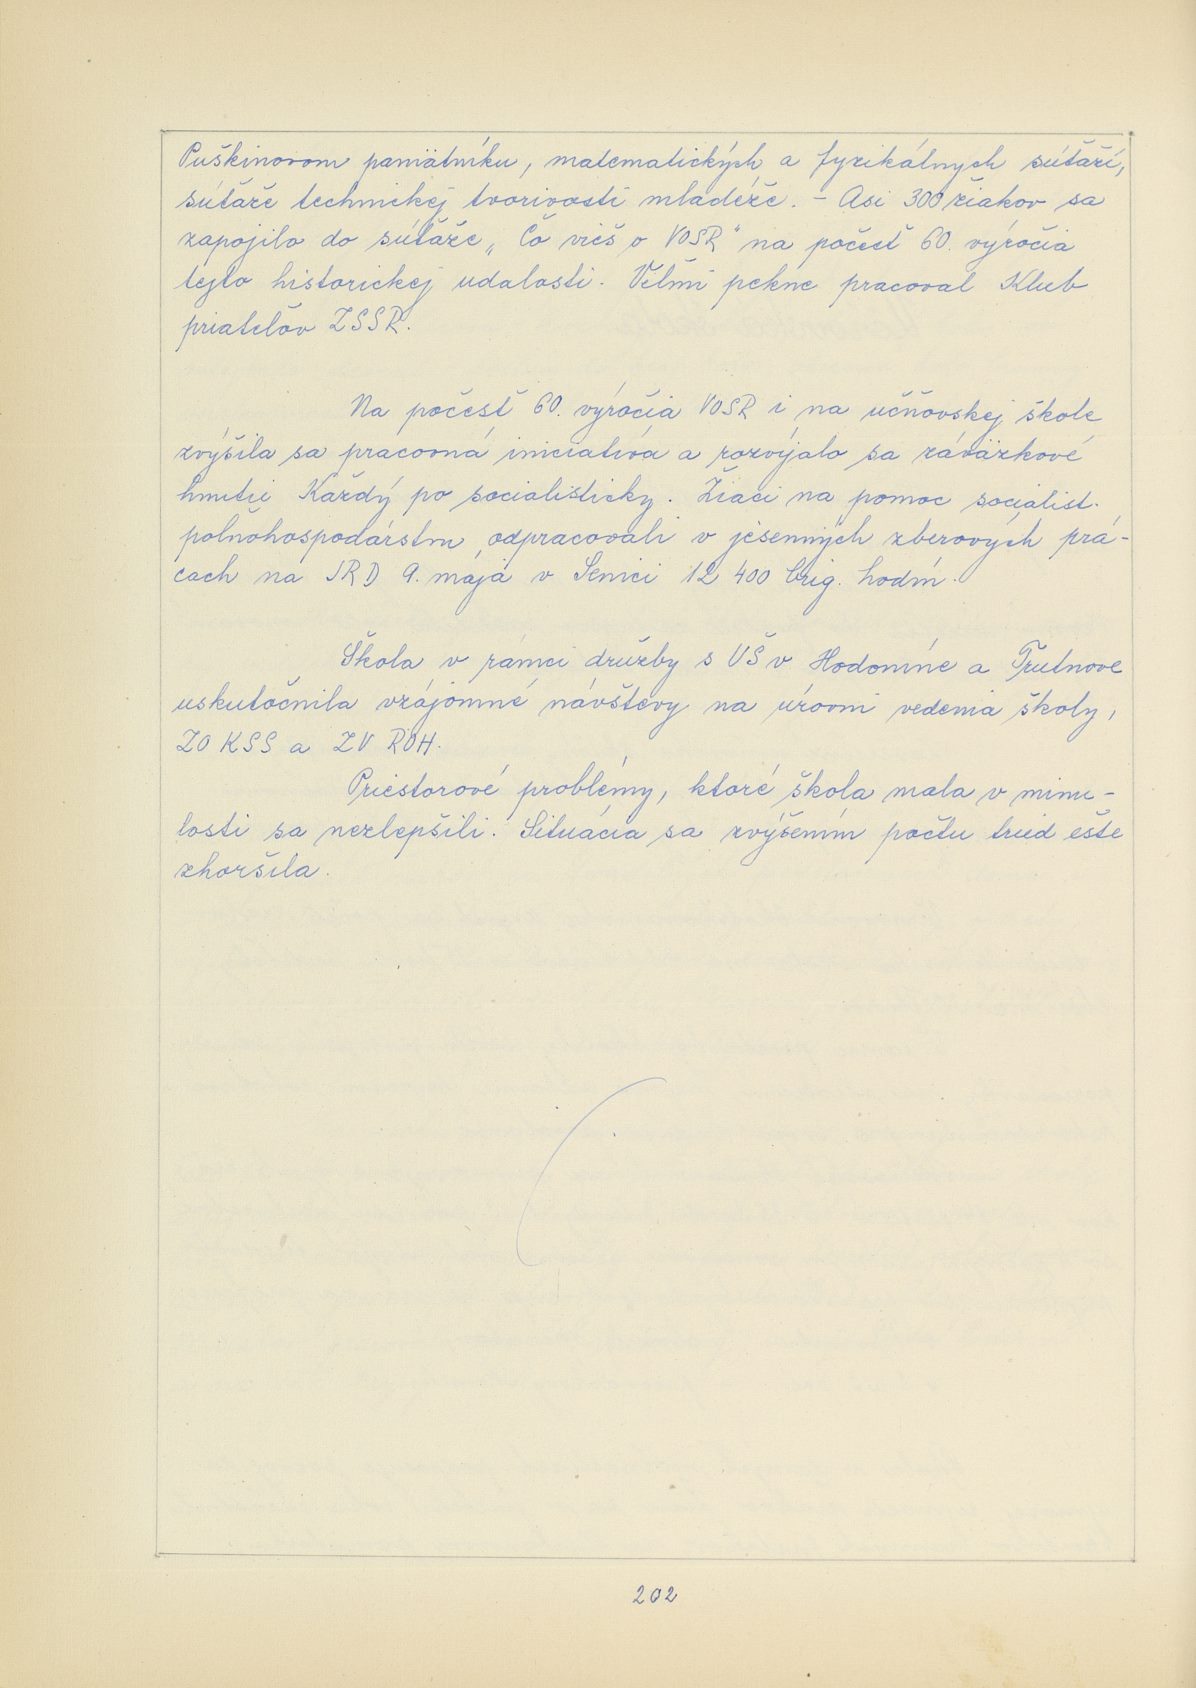 Puškinovom pamätníku, matematických a fyzikálnych súťaží,
súťaže technickej tvorivosti mládeže. - Asi 300 žiakov sa
zapojilo do súťaže „Čo vieš o VOSR" na počesť 60. výročia
tejto historickej udalosti. Veľmi pekne pracoval Klub
priateľov ZSSR.
Na počesť 60. výročia VOSR i na učňovskej škole
zvýšila sa pracovná iniciatíva a rozvíjalo sa záväzkové
hnutie Každý po socialisticky. Žiaci na pomoc socialist.
poľnohospodárstvu odpracovali v jesenných zberových prá-
cach na JRD 9. mája v Senici 12 400 brig. hodín.
Škola v rámci družby s UŠ v Hodoníne a Trutnove
uskutočnila vzájomné návštevy na úrovni vedenia školy,
ZO KSS a ZV ROH.
Priestorové problémy, ktoré škola mala v minu-
losti sa nezlepšili. Situácia sa zvýšením počtu tried ešte
zhoršila.
202